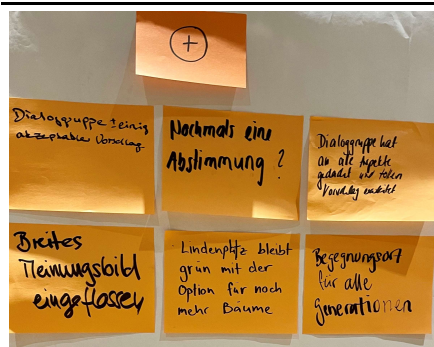 +
Dialoggruppe ± einig
akzeptabler Vorschlag
Nochmals eine
Abstimmung ?
Dialoggruppe hat
an alle Aspekte
gedacht und tollen
Vorschlag erarbeitet
Breites
Meinungsbild
eingeflossen
Lindenplatz bleibt
grün mit der
Option für noch
mehr Bäume
Begegnungsort
für alle
Generationen